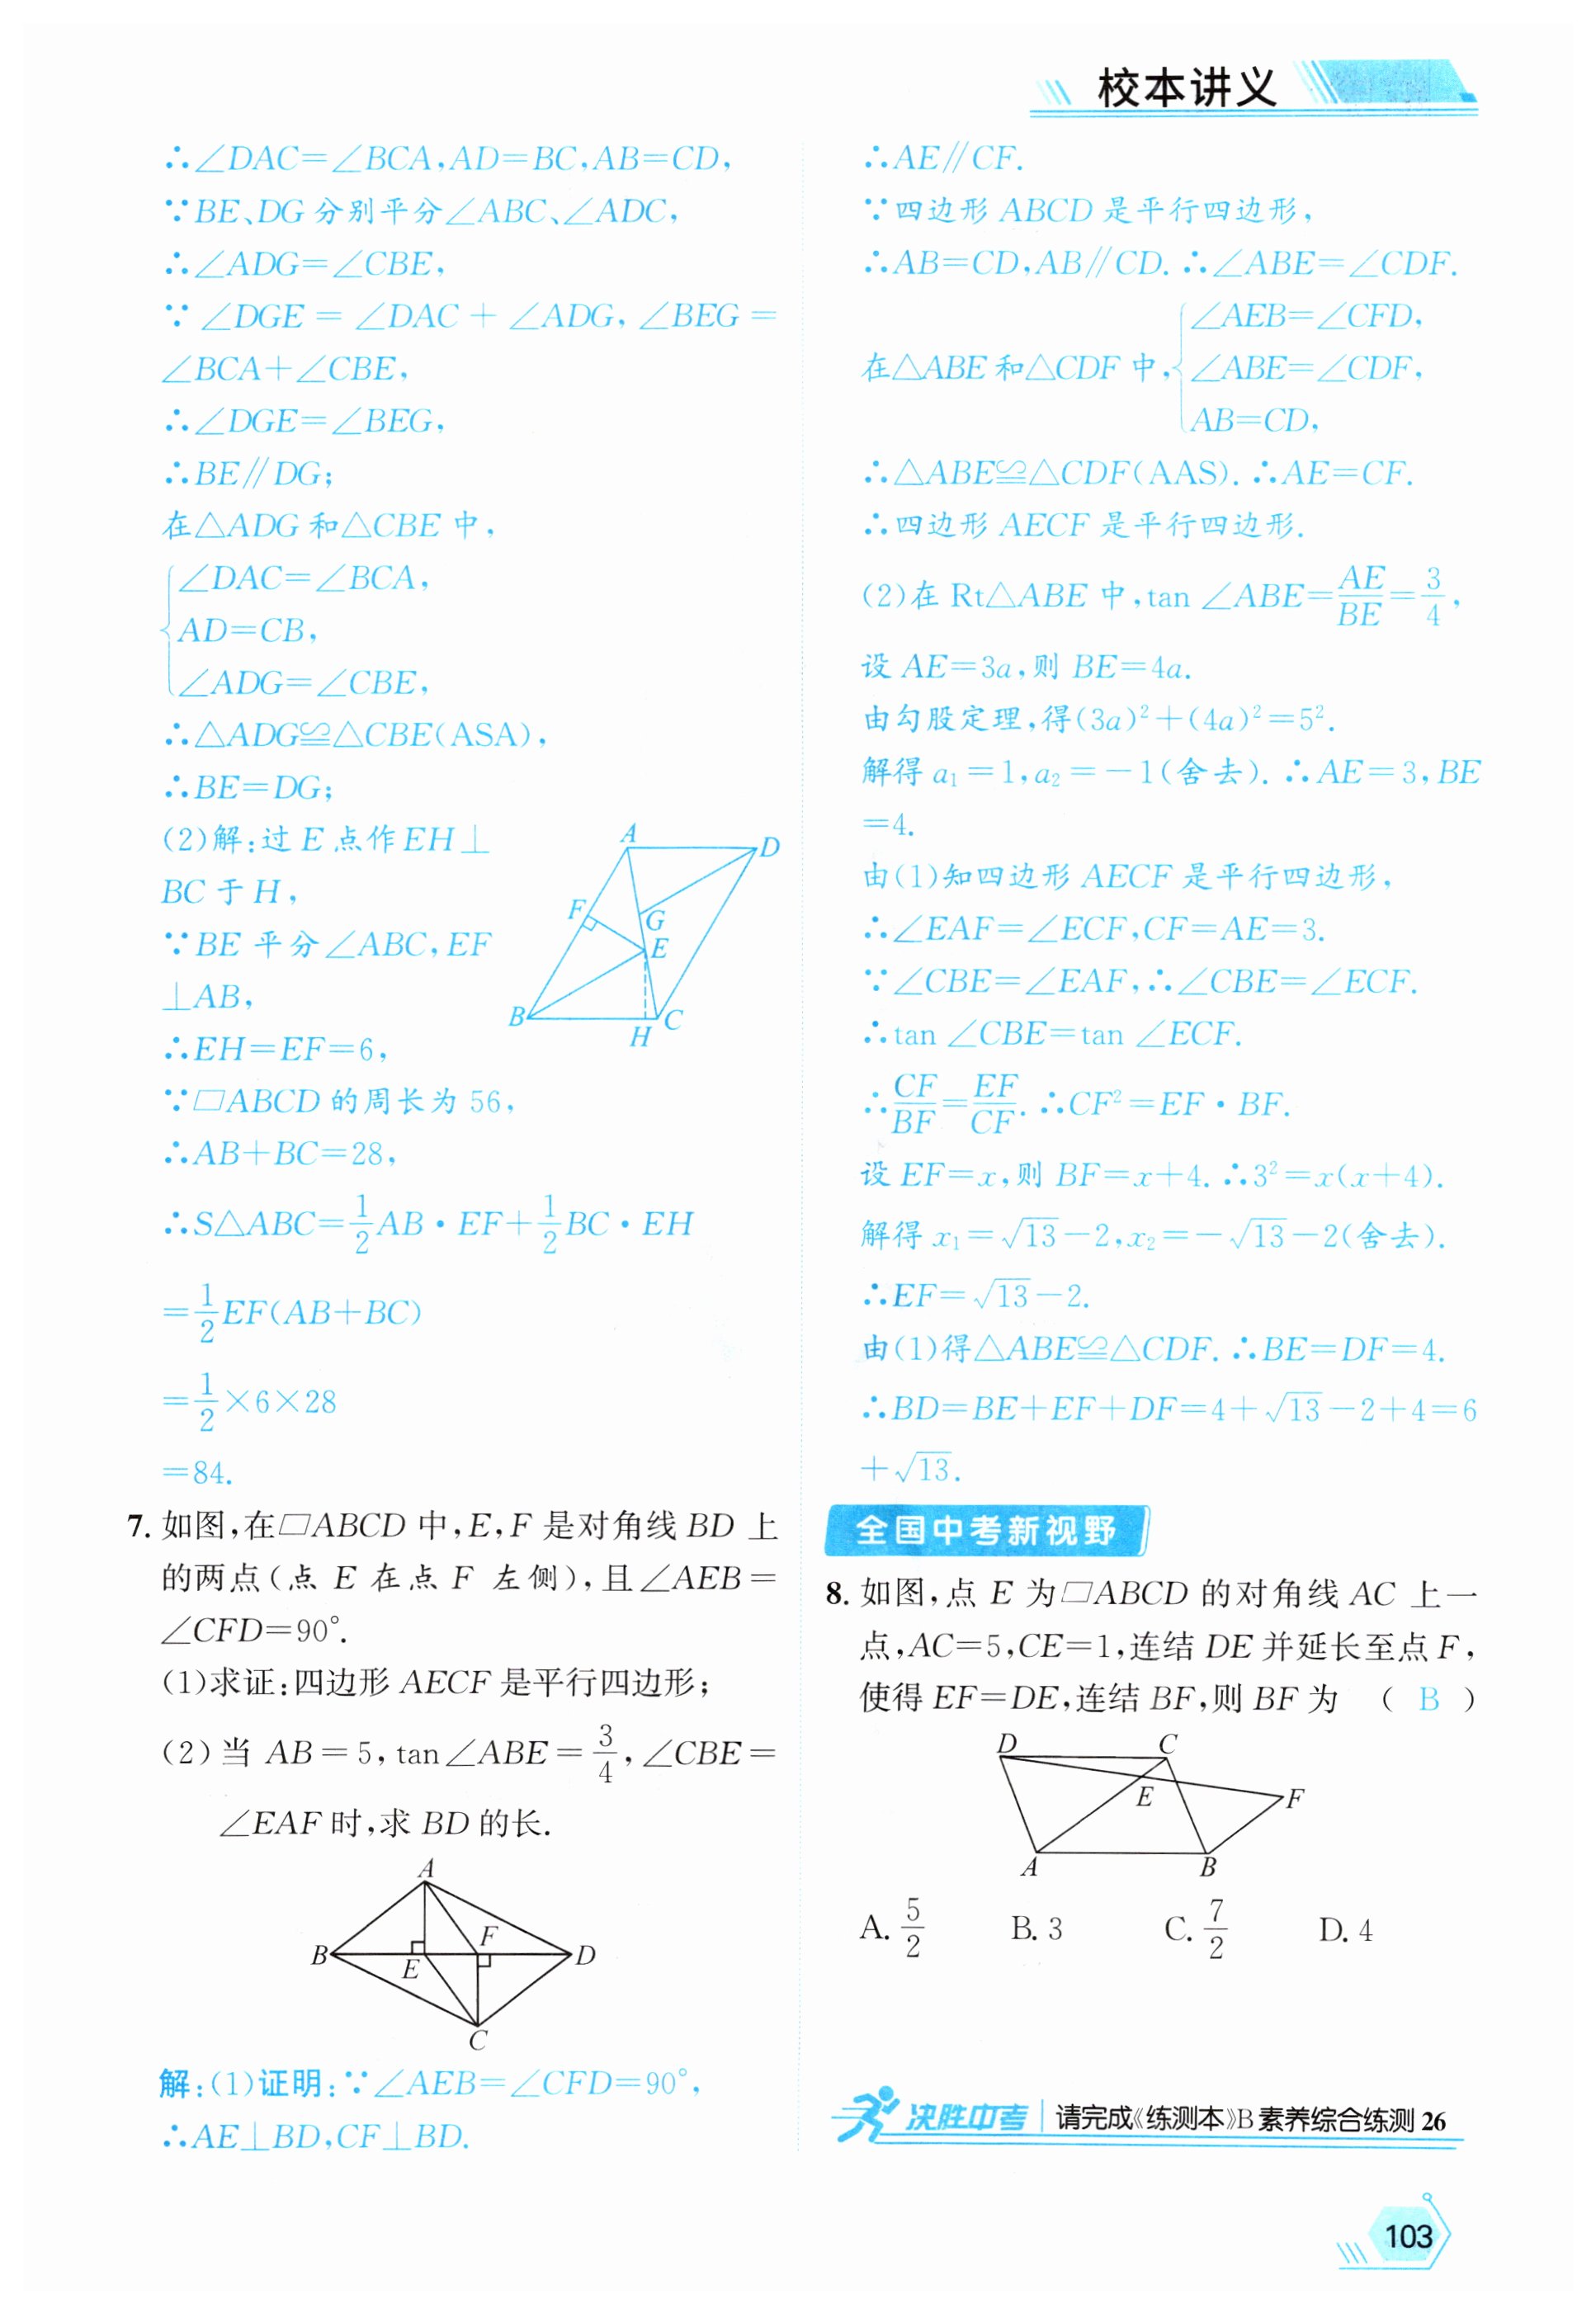 校本讲义
∴∠DAC=∠BCA,AD=BC,AB=CD,
∵BE、DG分别平分∠ABC、∠ADC,
∴∠ADG=∠CBE,
∵∠DGE=∠DAC+∠ADG,∠BEG=
∠BCA+∠CBE,
∴∠DGE=∠BEG,
∴BE∥DG;
在△ADG和△CBE中,
∠DAC=∠BCA,
AD=CB,
∠ADG=∠CBE,
∴△ADG≌△CBE(ASA),
∴BE=DG;
(2)解:过E点作EH⊥
BC于H,
∵BE平分∠ABC,EF
⊥AB,
∴EH=EF=6,
∵▱ABCD的周长为56,
∴AB+BC=28,
∴S△ABC=1/2AB·EF+1/2BC·EH
=1/2EF(AB+BC)
=1/2×6×28
=84.
A
D
F
G
E
B
H
C
7. 如图,在▱ABCD中,E,F是对角线BD上
的两点(点E在点F左侧),且∠AEB=
∠CFD=90°.
(1)求证:四边形AECF是平行四边形;
(2)当AB=5,tan∠ABE=3/4,∠CBE=
∠EAF时,求BD的长.
A
F
B
E
D
C
解:(1)证明:∵∠AEB=∠CFD=90°,
∴AE⊥BD,CF⊥BD.
∴AE∥CF.
∵四边形ABCD是平行四边形,
∴AB=CD,AB∥CD.∴∠ABE=∠CDF.
∠AEB=∠CFD,
在△ABE和△CDF中,∠ABE=∠CDF,
AB=CD,
∴△ABE≌△CDF(AAS).∴AE=CF.
∴四边形AECF是平行四边形.
(2)在Rt△ABE中,tan∠ABE=AE/BE=3/4,
设AE=3a,则BE=4a.
由勾股定理,得(3a)²+(4a)²=5².
解得a₁=1,a₂=-1(舍去).∴AE=3,BE
=4.
由(1)知四边形AECF是平行四边形,
∴∠EAF=∠ECF,CF=AE=3.
∵∠CBE=∠EAF,∴∠CBE=∠ECF.
∴tan∠CBE=tan∠ECF.
∴CF/BF=EF/CF.∴CF²=EF·BF.
设EF=x,则BF=x+4.∴3²=x(x+4).
解得x₁=√13-2,x₂=-√13-2(舍去).
∴EF=√13-2.
由(1)得△ABE≌△CDF.∴BE=DF=4.
∴BD=BE+EF+DF=4+√13-2+4=6
+√13.
全国中考新视野
8. 如图,点E为▱ABCD的对角线AC上一
点,AC=5,CE=1,连结DE并延长至点F,
使得EF=DE,连结BF,则BF为 ( B )
D
C
E
F
A
B
A. 5/2 B. 3 C. 7/2 D. 4
决胜中考 请完成《练测本》B素养综合练测26
103